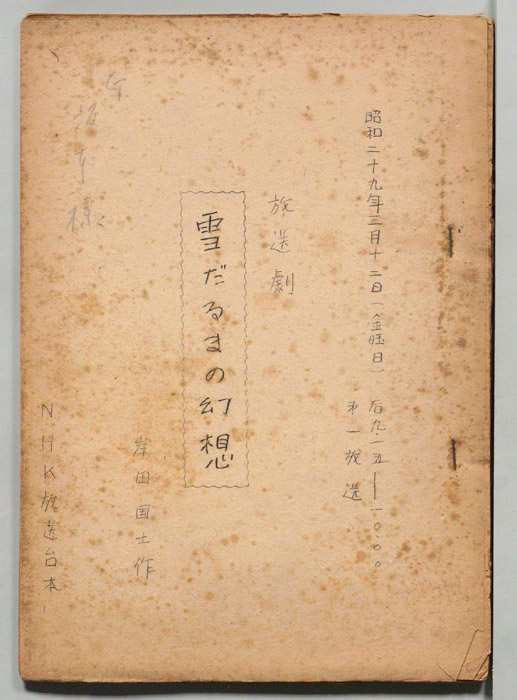 昭和二十九年三月十二日(金旺日)
后九.一五―一〇.〇〇
オ一放送
放送劇
雪だるまの幻想
岸田国士作
坂本様
NHK放送台本